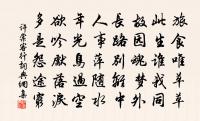 旅食唯草草
此生誰我同
故園魂夢外
長路別離中
人事萍隨水
年光鳥過空
欲吟先落淚
多是怨途窮
許棠客行詞典網集